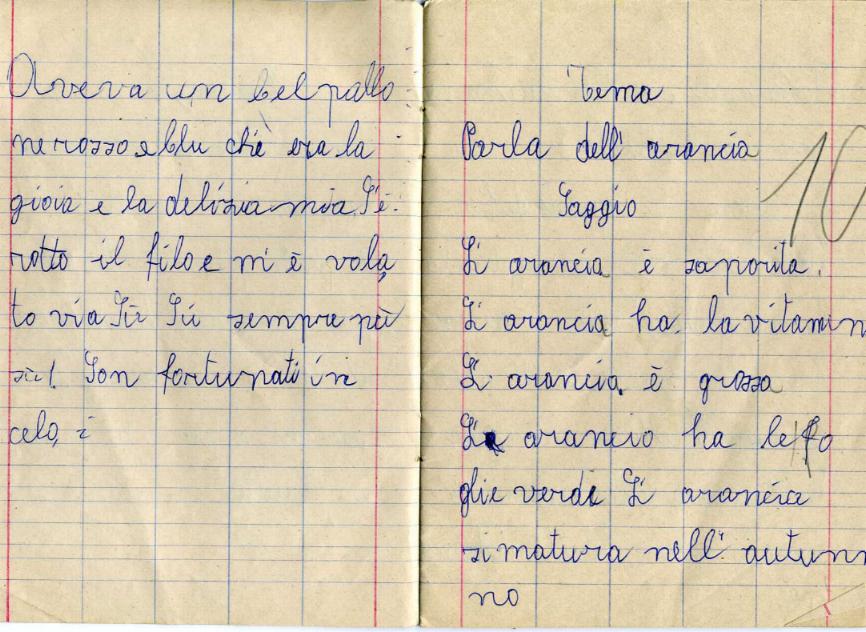 Aveva un bel pallo
ne rosso e blu chè era la
gioia e la delizia mia S'è
rotto il filo e m'è vola
to via Sù Sù sempre più
sù! Son fortunati in
celo, i
Tema
Parla dell'arancia
Saggio
L'arancia è saporita.
L'arancia ha la vitamin
L'arancia è grossa
L'arancio ha le fo
glie verdi L'arancia
si matura nell'autunn
no
10